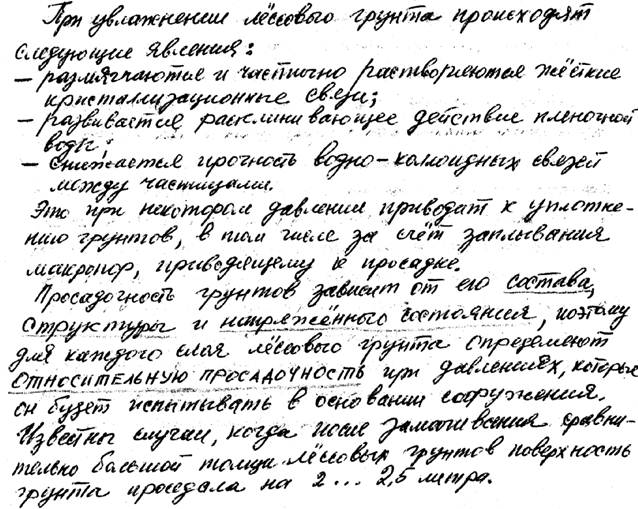 При увлажнении лёссового грунта происходят
следующие явления:
– размягчаются и частично растворяются жёсткие
кристаллизационные связи;
– развивается расклинивающее действие пленочной
воды;
– снижается прочность водно-коллоидных связей
между частицами.
Это при некотором давлении приводит к уплотне-
нию грунтов, в том числе за счёт заплывания
макропор, приводящему к просадке.
Просадочность грунтов зависит от его состава,
структуры и напряжённого состояния, поэтому
для каждого слоя лёссового грунта определяют
ОТНОСИТЕЛЬНУЮ ПРОСАДОЧНОСТЬ при давлениях, которые
он будет испытывать в основании сооружения.
Известны случаи, когда после замачивания сравни-
тельно большой толщи лёссовых грунтов поверхность
грунта проседала на 2... 2,5 метра.